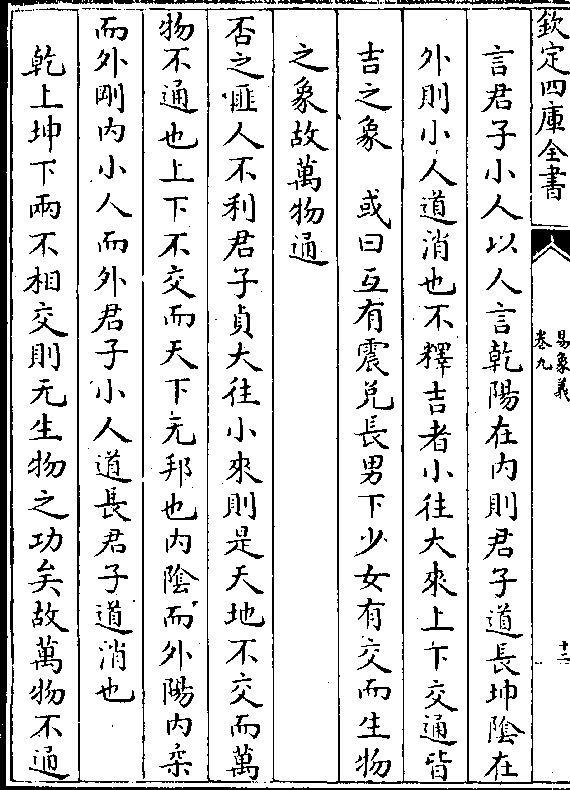 欽定四庫全書
易象義
卷九
十三
言君子小人以人言乾陽在内則君子道長坤陰在
外則小人道消也不釋吉者小往大來上下交通皆
吉之象　或曰互有震兌長男下少女有交而生物
之象故萬物通
否之匪人不利君子貞大往小來則是天地不交而萬
物不通也上下不交而天下无邦也内陰而外陽内柔
而外剛内小人而外君子小人道長君子道消也
乾上坤下兩不相交則无生物之功矣故萬物不通